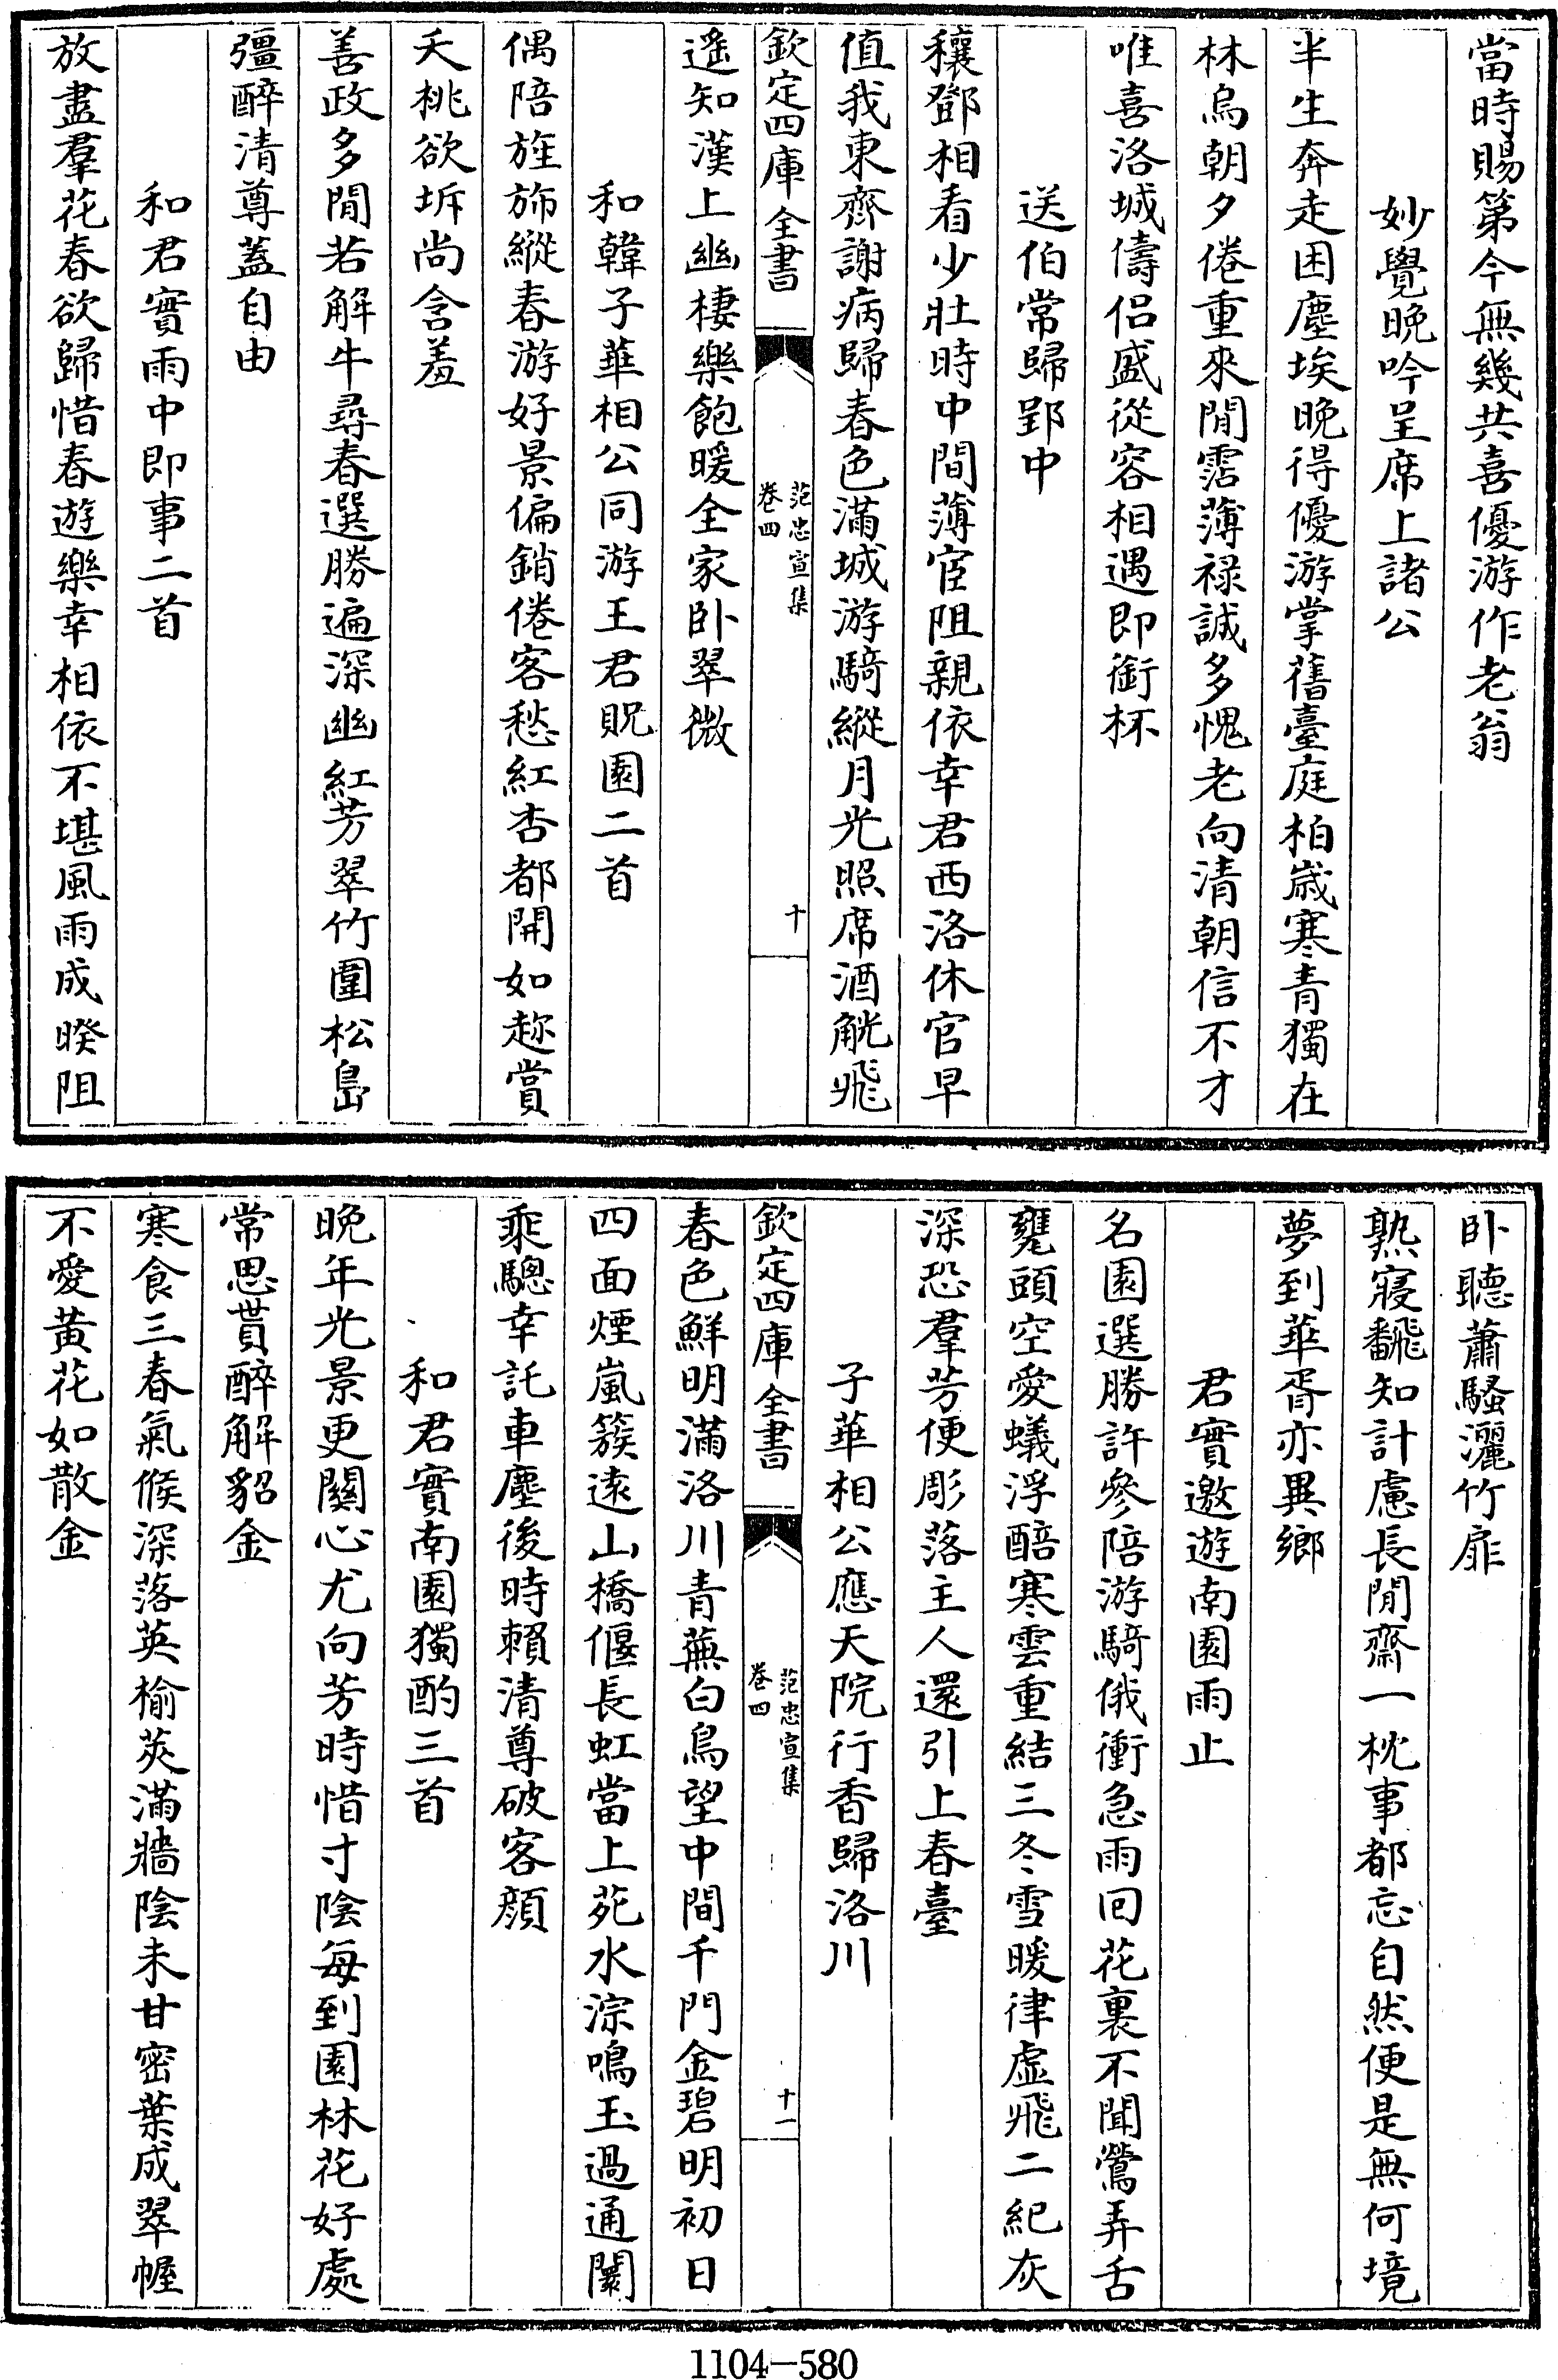 當時賜第今無幾共喜優游作老翁
妙覺晚吟呈席上諸公
半生奔走困塵埃晚得優游掌舊臺庭柏歲寒青獨在
林烏朝夕倦重來閒霑薄祿誠多愧老向清朝信不才
唯喜洛城儔侶盛從容相遇即銜杯
送伯常歸郢中
穰鄧相看少壯時中間薄宦阻親依幸君西洛休官早
值我東齋謝病歸春色滿城游騎縱月光照席酒觥飛
欽定四庫全書
范忠宣集
卷四
十
遙知漢上幽棲樂飽暖全家卧翠微
和韓子華相公同游王君貺園二首
偶陪旌斾縱春游好景偏銷倦客愁紅杏都開如趂賞
夭桃欲坼尚含羞
善政多閒若解牛尋春選勝遍深幽紅芳翠竹圍松島
彊醉清尊蓋自由
和君實雨中即事二首
放盡羣花春欲歸惜春遊樂幸相依不堪風雨成暌阻
卧聽蕭騷灑竹扉
熟寢飜知計慮長閒齋一枕事都忘自然便是無何境
夢到華胥亦異鄉
君實邀遊南園雨止
名園選勝許參陪游騎俄衝急雨回花裏不聞鶯弄舌
甕頭空愛蟻浮醅寒雲重結三冬雪暖律虛飛二紀灰
深恐羣芳便彫落主人還引上春臺
子華相公應天院行香歸洛川
欽定四庫全書
范忠宣集
卷四
十一
春色鮮明滿洛川青蕪白鳥望中間千門金碧明初日
四面煙嵐簇遠山橋偃長虹當上苑水淙鳴玉過通闤
乘驄幸託車塵後時賴清尊破客顔
和君實南園獨酌三首
晚年光景更關心尤向芳時惜寸陰每到園林花好處
常思貰醉解貂金
寒食三春氣候深落英榆莢滿牆陰未甘密葉成翠幄
不愛黃花如散金
1104-580